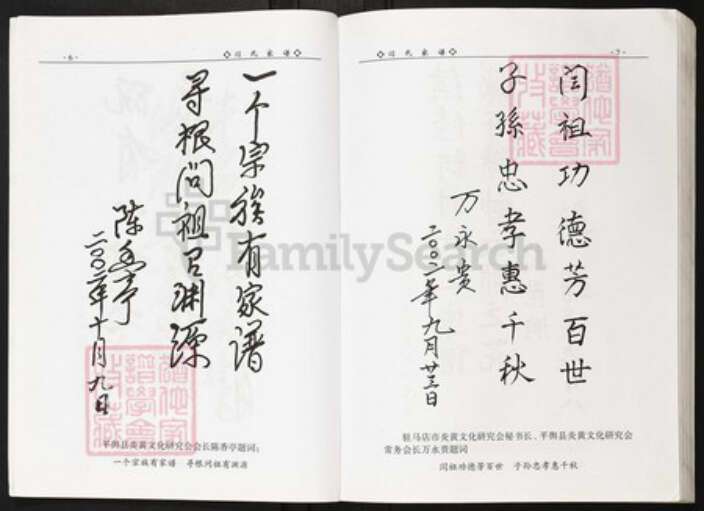 ·6·
◇闫氏家谱◇
一个宗族有家谱
寻根问祖召渊源
陈香亭
二〇〇二年十月九日
平舆县炎黄文化研究会会长陈香亭题词:
一个家族有家谱 寻根问祖有渊源
◇闫氏家谱◇
·7·
闫祖功德芳百世
子孫忠孝惠千秋
万永贵
二〇〇二年九月廿三日
驻马店市炎黄文化研究会秘书长、平舆县炎黄文化研究会
常务会长万永贵题词
闫祖功德芳百世 子孙忠孝惠千秋
FamilySearch